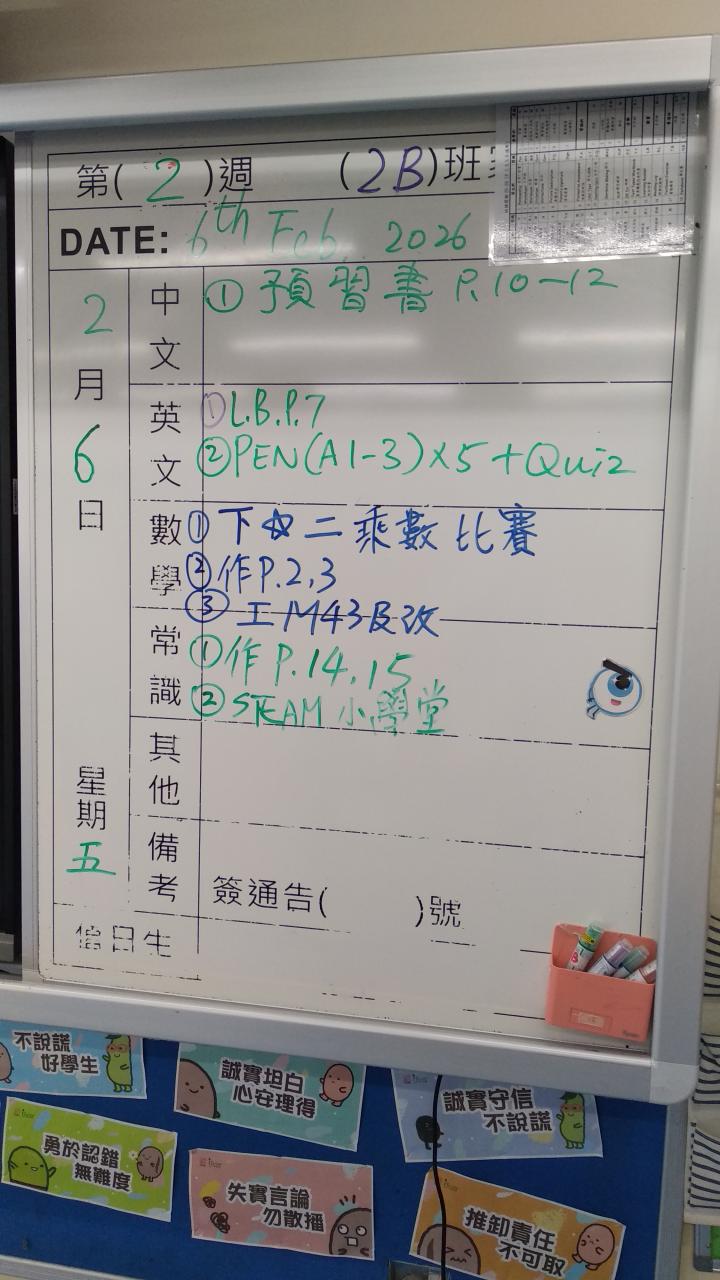 第(2)週 (2B)班
DATE: 6th Feb. 2026
2月6日
星期五
中文
① 預習書 P.10-12
英文
① L.B.P.7
② PEN(A1-3)x5+Quiz
數學
① 下 二乘數比賽
② 作P.2,3
③ 工M43及改
常識
① 作P.14,15
② STEAM小學堂
其他
備考
簽通告( )號
值日生
不說謊
好學生
誠實坦白
心安理得
誠實守信
不說謊
勇於認錯
無難度
失實言論
勿散播
推卸責任
不可取